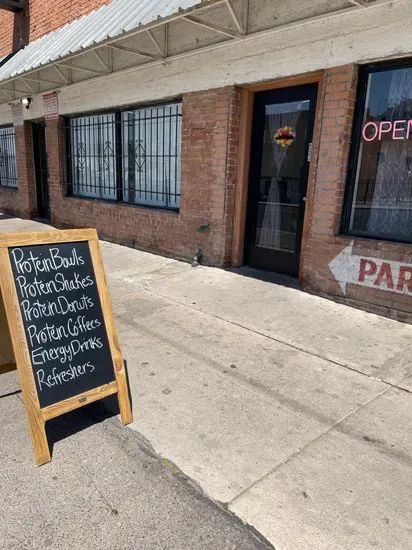 Protein Bowls
Protein Shakes
Protein Donuts
Protein Coffees
Energy Drinks
Refreshers
OPEN
PAR